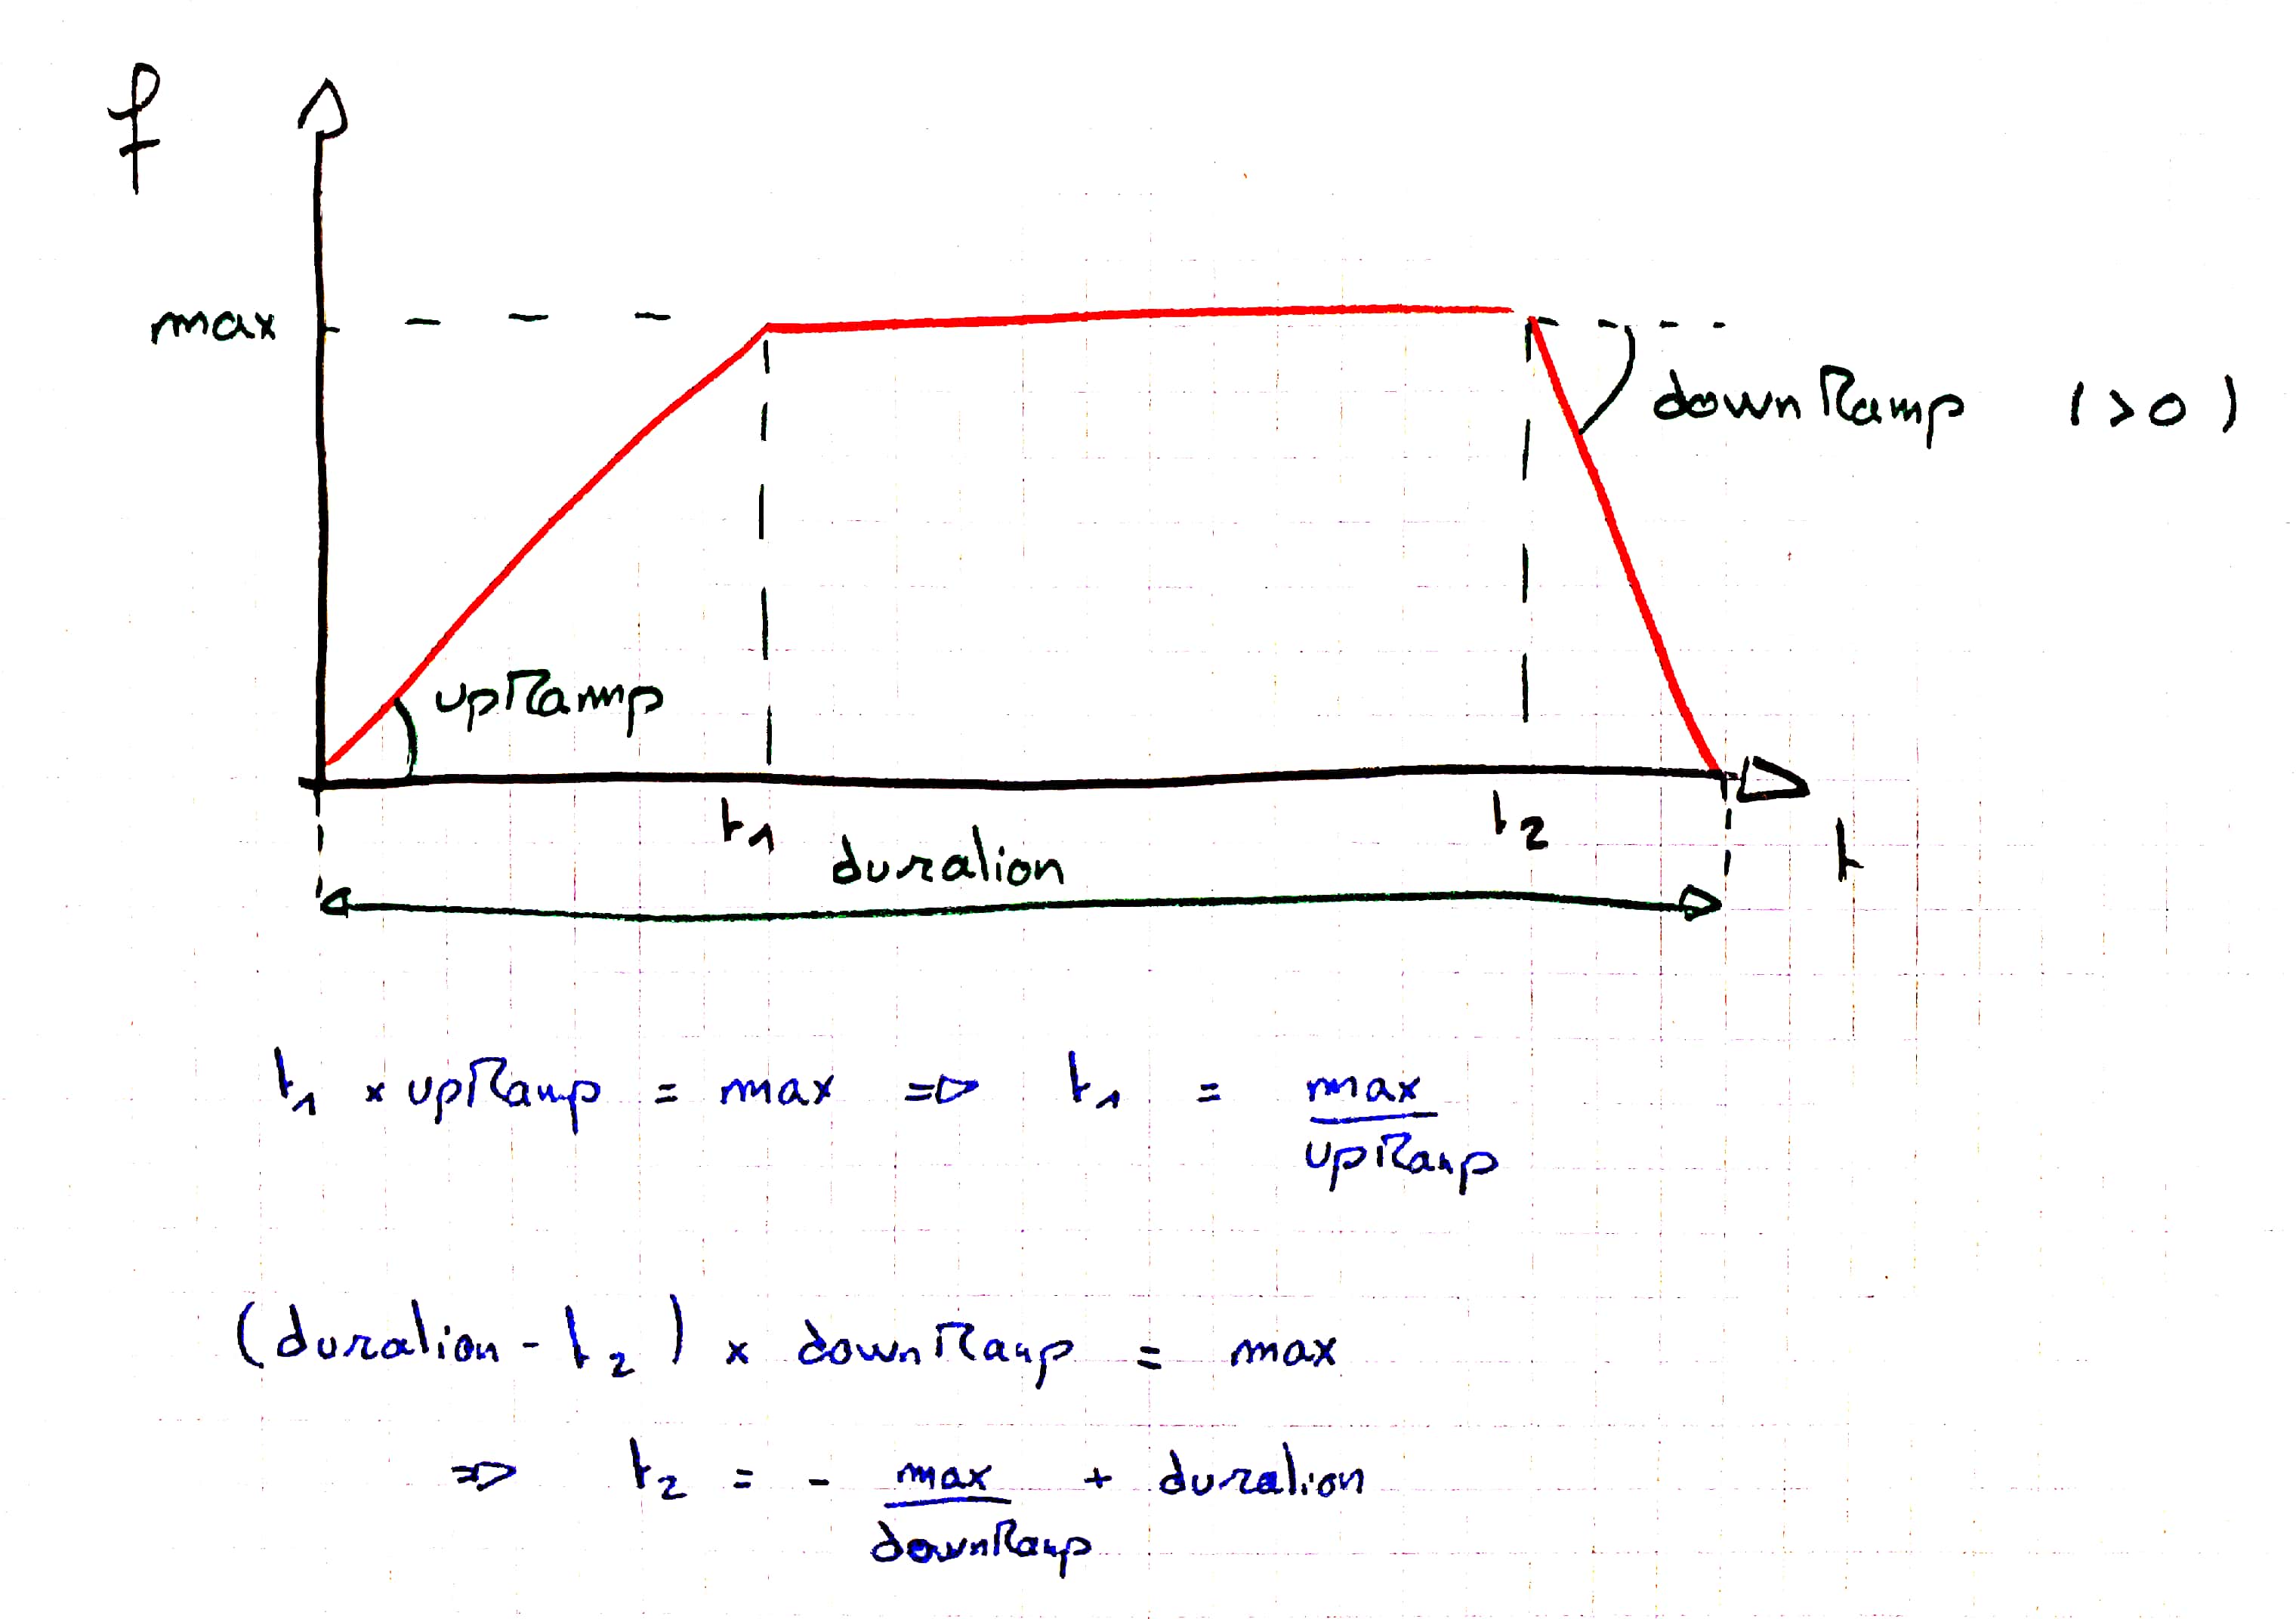 f
max
downRamp (>0)
upRamp
t1 t2
duration t
t1 × upRamp = max => t1 = max
upRamp
(duration - t2) × downRamp = max
=> t2 = - max + duration
downRamp